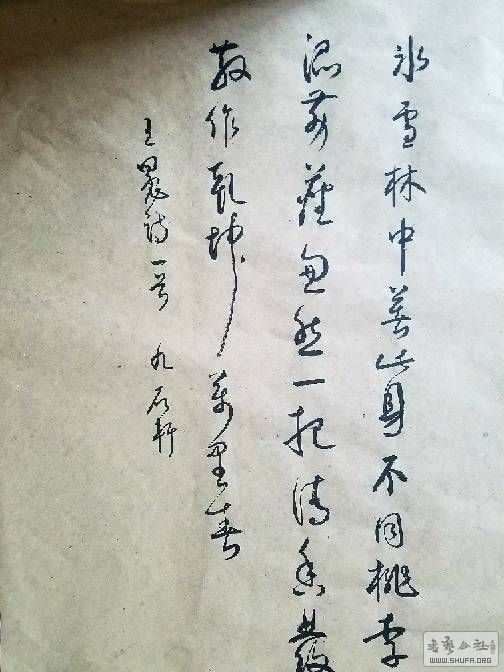 冰雪林中著此身不同桃李
混芳塵忽然一夜清香發
散作乾坤萬里春
王冕詩一首 九石軒
書藝公社
WWW.SHUFA.ORG